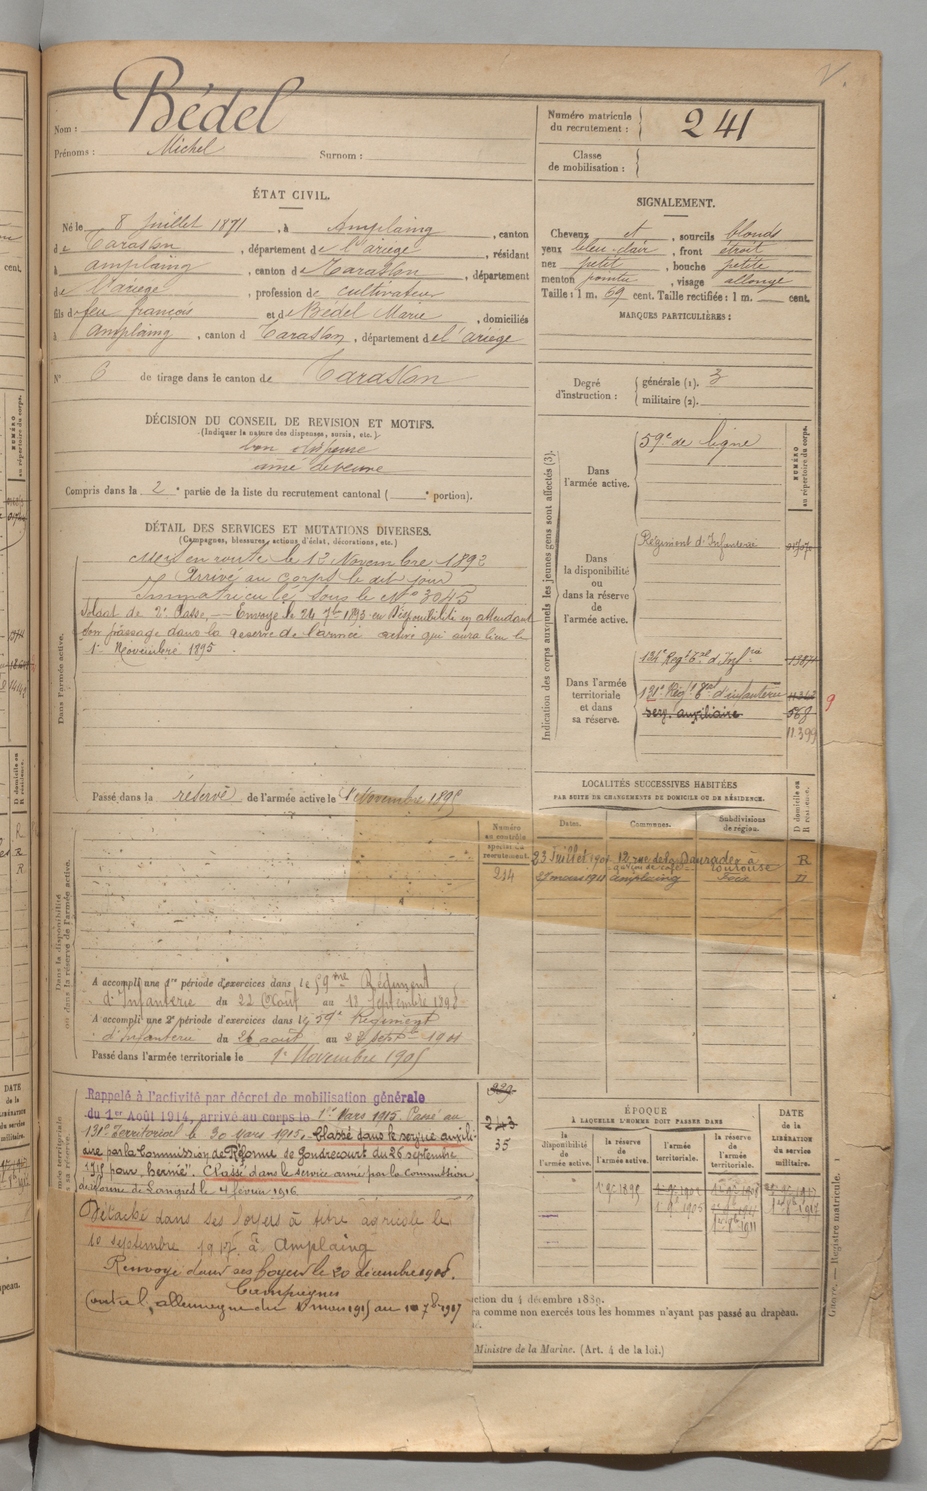 Nom : Bédel
Prénoms : Michel Surnom :
Numéro matricule du recrutement : 241
Classe de mobilisation :
ÉTAT CIVIL.
Né le 8 Juillet 1871, à Amplaing, canton
de Tarascon, département de l'ariège, résidant
à amplaing, canton de Tarascon, département
de l'ariège, profession de cultivateur
fils de feu françois et de Bédel Marie, domiciliés
à Amplaing, canton d Tarascon, département de l'ariège
N° 6 de tirage dans le canton de Tarascon
SIGNALEMENT.
Cheveux et, sourcils blonds
yeux bleu-clair, front étroit
nez petit, bouche petite
menton pointu, visage allongé
Taille : 1 m. 59 cent. Taille rectifiée : 1 m. cent.
MARQUES PARTICULIÈRES :
Degré d'instruction : générale (1). 3
militaire (2).
DÉCISION DU CONSEIL DE REVISION ET MOTIFS.
(Indiquer la nature des dispenses, sursis, etc.)
bon dispensé
Compris dans la 2e partie de la liste du recrutement cantonal ( e portion).
DÉTAIL DES SERVICES ET MUTATIONS DIVERSES.
(Campagnes, blessures, actions d'éclat, décorations, etc.)
Dans l'armée active.
Mis en route le 12 Novembre 1892
Arrivé au corps le dit jour
Immatriculé sous le N° 3045
Soldat de 2e Classe, — Envoyé le 24 7bre 1895 en Disponibilité en attendant
son passage dans la réserve de l'armée active qui aura lieu le
1er Novembre 1895.
Passé dans la réserve de l'armée active le 1er Novembre 1895
Indication des corps auxquels les jeunes gens sont affectés (3).
NUMÉRO au répertoire du corps.
Dans l'armée active.
59e de ligne
Dans la disponibilité ou dans la réserve de l'armée active.
Régiment d'Infanterie
Dans l'armée territoriale et dans sa réserve.
134e Régt Tal d'Infrie
131e Régt Tal d'infanterie
serv. auxiliaire 568
11.399
9
LOCALITÉS SUCCESSIVES HABITÉES
PAR SUITE DE CHANGEMENTS DE DOMICILE OU DE RÉSIDENCE.
D domicile ou R résidence.
Dates. Communes. Subdivisions de région.
23 Juillet 1901 12, rue de la Daurade à Toulouse R
27 mars 1911 Amplaing Foix D
Numéro au contrôle spécial du recrutement.
214
Dans la disponibilité ou dans la réserve de l'armée active.
A accompli une 1re période d'exercices dans le 59me Régiment
d'Infanterie du 22 Août au 18 Septembre 1898
A accompli une 2e période d'exercices dans le 59e Régiment
d'Infanterie du 26 août au 22 septbre 1901
Passé dans l'armée territoriale le 1er Novembre 1905
Rappelé à l'activité par décret de mobilisation générale
du 1er Août 1914, arrivé au corps le 1er Mars 1915. Passé au
131e Territorial le 30 Mars 1915. Classé dans le service auxili-
aire par la Commission de Réforme de Gondrecourt du 26 septembre
1915 pour "hernie". Classé dans le service armé par la commission
de réforme de Langres le 4 février 1916
229
243
35
Détaché dans ses foyers à titre agricole le
10 septembre 1917 à Amplaing
Renvoyé dans ses foyers le 20 décembre 1918.
Campagnes
Contre l'allemagne du 1 mars 1915 au 10 7bre 1917
ÉPOQUE
À LAQUELLE L'HOMME DOIT PASSER DANS
DATE DE LA LIBÉRATION DU SERVICE MILITAIRE.
la disponibilité de l'armée active. la réserve de l'armée active. l'armée territoriale. la réserve de l'armée territoriale.
1er 9bre 1895
1er 9bre 1905
ction du 4 décembre 1889.
ra comme non exercés tous les hommes n'ayant pas passé au drapeau.
Ministre de la Marine. (Art. 4 de la loi.)
Guerre. — Registre matricule.